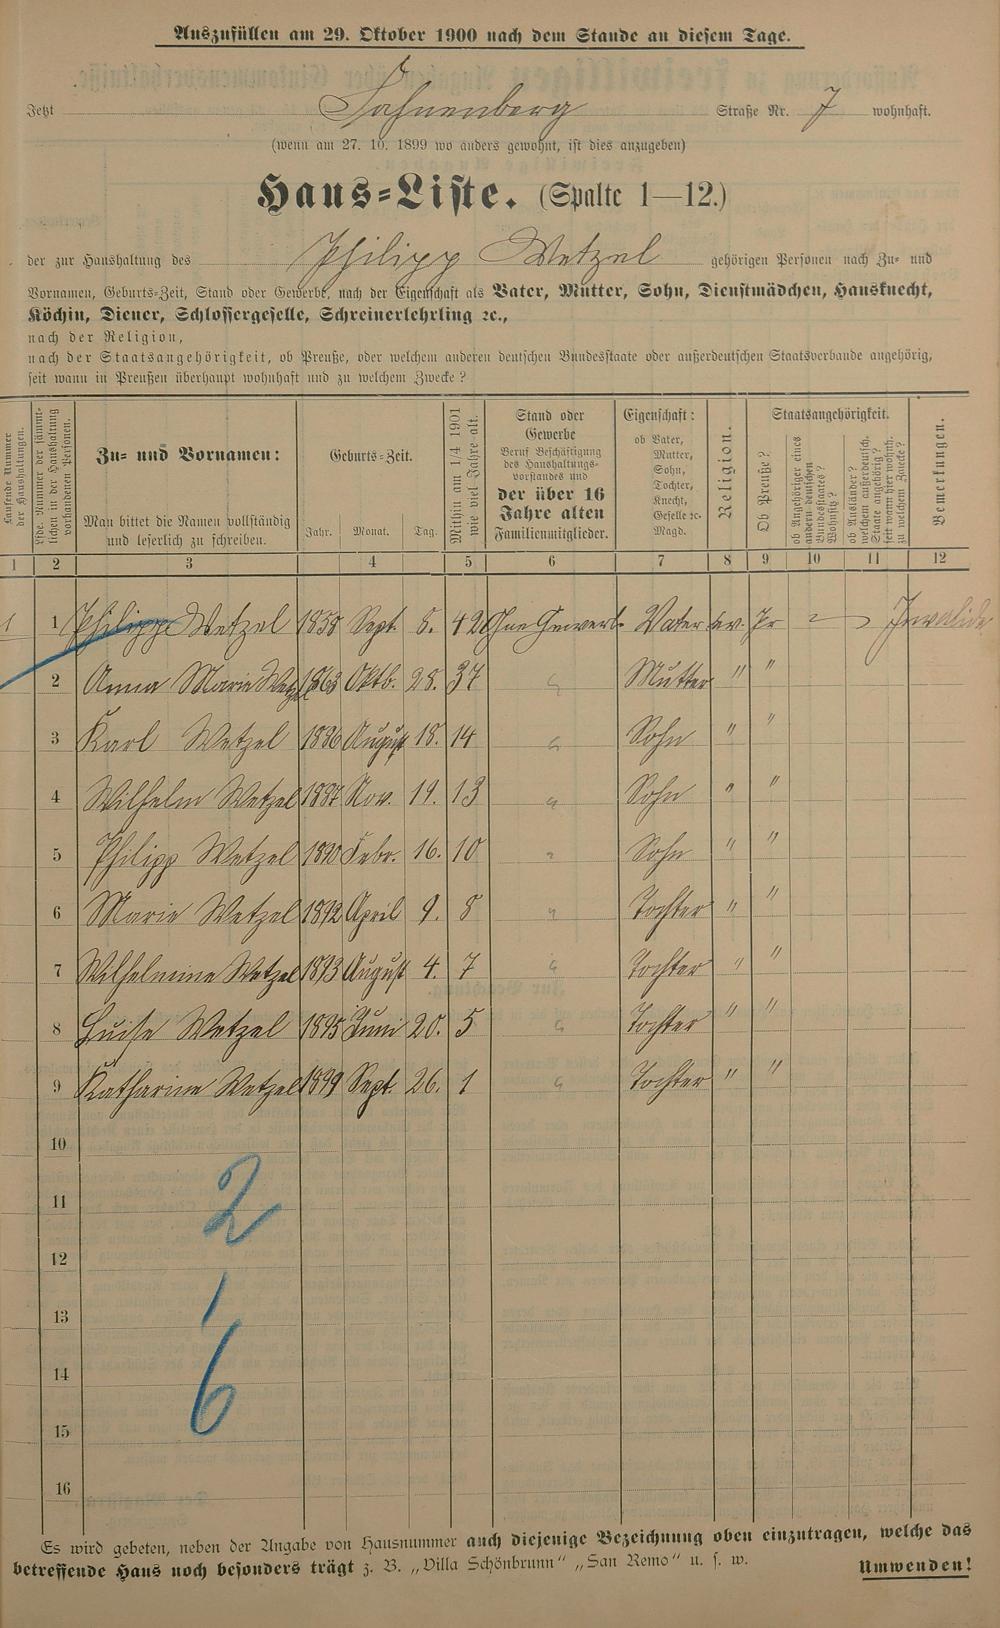 Auszufüllen am 29. Oktober 1900 nach dem Stande an diesem Tage.
Jetzt Straße Nr. 7 wohnhaft.
(wenn am 27. 10. 1899 wo anders gewohnt, ist dies anzugeben)
Haus-Liste. (Spalte 1—12.)
der zur Haushaltung des Philipp Wetzel gehörigen Personen nach Zu- und
Vornamen, Geburts-Zeit, Stand oder Gewerbe, nach der Eigenschaft als Vater, Mutter, Sohn, Dienstmädchen, Hausknecht,
Köchin, Diener, Schlossergeselle, Schreinerlehrling ꝛc.,
nach der Religion,
nach der Staatsangehörigkeit, ob Preuße, oder welchem anderen deutschen Bundesstaate oder außerdeutschen Staatsverbande angehörig,
seit wann in Preußen überhaupt wohnhaft und zu welchem Zwecke?
Laufende Nummer der Haushaltungen.
Lfde. Nummer der sämmtlichen in der Haushaltung vorhandenen Personen.
Zu- und Vornamen:
Man bittet die Namen vollständig
und leserlich zu schreiben.
Geburts-Zeit.
Jahr. Monat. Tag.
Mithin am 1/4 1901 wie viel Jahre alt.
Stand oder
Gewerbe
Beruf Beschäftigung
des Haushaltungs-
vorstandes und
der über 16
Jahre alten
Familienmitglieder.
Eigenschaft:
ob Vater,
Mutter,
Sohn,
Tochter,
Knecht,
Geselle ꝛc.
Magd.
Religion.
Staatsangehörigkeit.
Ob Preuße?
ob Angehöriger eines andern deutschen Bundesstaates? Wohnsitz?
ob Ausländer? welchem außerdeutsch. Staate angehörig? seit wann hier wohnh. zu welchem Zwecke?
Bemerkungen.
1 2 3 4 5 6 7 8 9 10 11 12
1 1 Philipp Wetzel 1858 Sept. 8. 42 Ohne Gewerb. Vater ev. Pr Invalide
2 Anna Marie Wetzel 1863 Oktb. 28. 37 Mutter " "
3 Karl Wetzel 1886 August 18. 14 Sohn " "
4 Wilhelm Wetzel 1887 Nov. 19. 13 Sohn " "
5 Philipp Wetzel 1890 Febr. 16. 10 Sohn " "
6 Marie Wetzel 1892 April 9. 8 Tochter " "
7 Wilhelmine Wetzel 1893 August 4. 7 Tochter " "
8 Luise Wetzel 1895 Juni 20. 5 Tochter " "
9 Katharine Wetzel 1899 Sept. 26. 1 Tochter " "
10
11 2
12
13 1
14 6
15
16
Es wird gebeten, neben der Angabe von Hausnummer auch diejenige Bezeichnung oben einzutragen, welche das
betreffende Haus noch besonders trägt z. B. „Villa Schönbrunn“ „San Remo“ u. s. w. Umwenden!